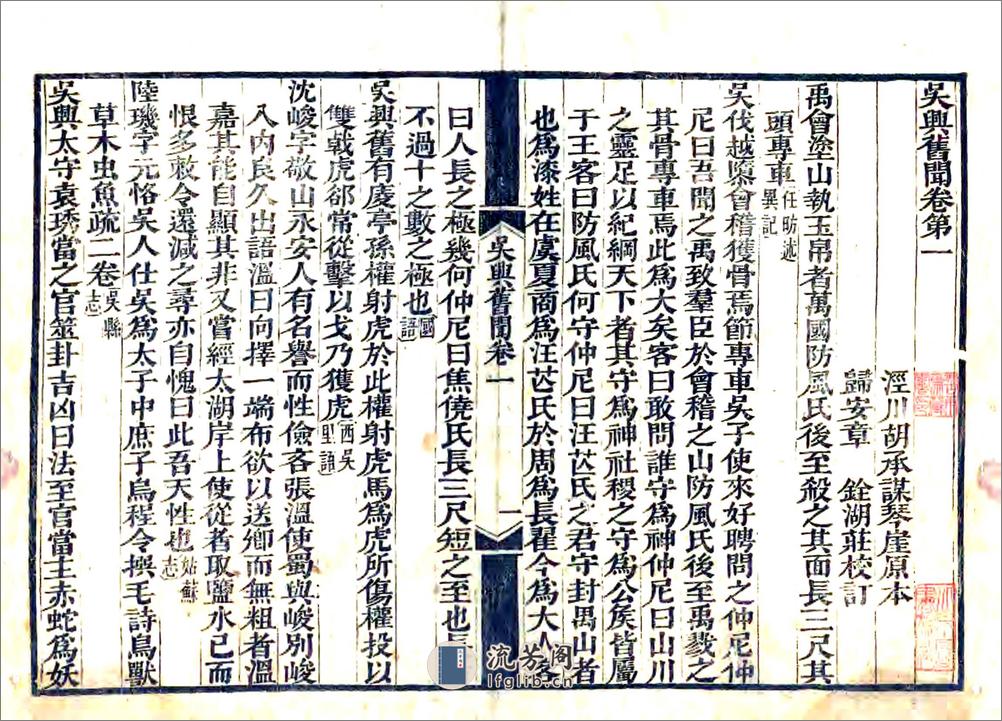 吳興舊聞卷第一
涇川胡承謀琴崖原本
歸安章　銓湖莊校訂
禹會塗山執玉帛者萬國防風氏後至殺之其面長三尺其
頭專車任昉述異記
吳伐越隳會稽獲骨焉節專車吳子使來好聘問之仲尼仲
尼曰吾聞之禹致羣臣於會稽之山防風氏後至禹戮之
其骨專車焉此爲大矣客曰敢問誰守爲神仲尼曰山川
之靈足以紀綱天下者其守爲神社稷之守爲公侯皆屬
于王客曰防風氏何守仲尼曰汪芒氏之君守封禺山者
也爲漆姓在虞夏商爲汪芒氏於周爲長翟今爲大人客
吳興舊聞卷一
一
曰人長之極幾何仲尼曰焦僥氏長三尺短之至也長
不過十之數之極也國語
吳興舊有慶亭孫權射虎於此權射虎馬爲虎所傷權投以
雙戟虎卻常從擊以戈乃獲虎西吳里語
沈峻字敬山永安人有名譽而性儉吝張溫使蜀與峻別峻
入內良久出語溫曰向擇一端布欲以送卿而無粗者溫
嘉其能自顯其非又嘗經太湖岸上使從者取鹽水已而
恨多敕令還減之尋亦自愧曰此吾天性也姑蘇志
陸璣字元恪吳人仕吳爲太子中庶子烏程令撰毛詩鳥獸
草木虫魚疏二卷吳縣志
吳興太守袁琇當之官筮卦吉凶曰法至官當主赤蛇爲妖
流芳阁
lfglib.cn